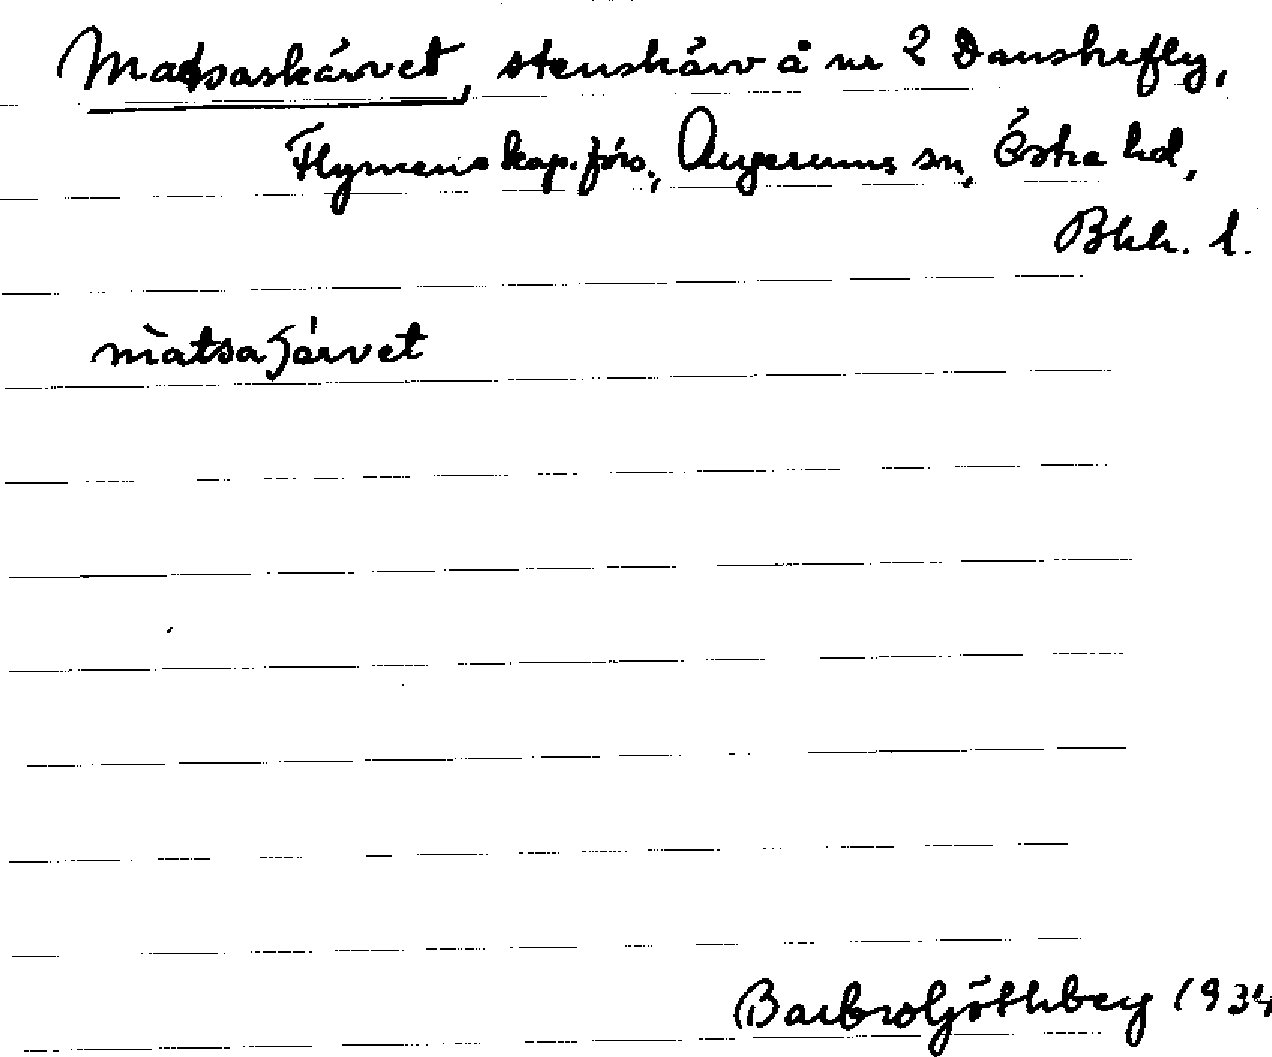 Madsaskärvet, stenskärv å nr 2 Danskefly,
Flymens kap. förs., Augerums sn, Östra hd,
Blek. l.
màtsaʃä́rvet
Barbro Göthberg 1934